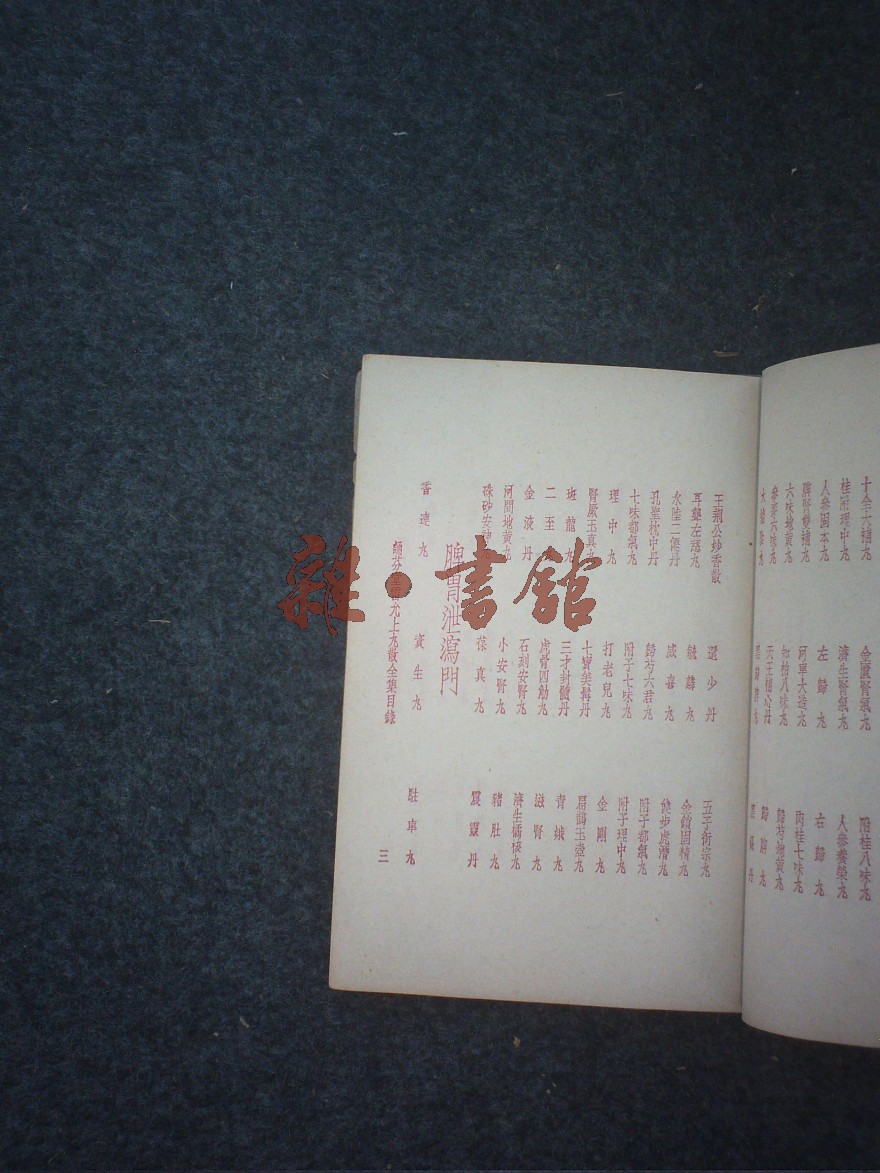 十全大補丸 金匱腎氣丸 附桂八味丸
桂附理中丸 濟生腎氣丸 人參養榮丸
人參固本丸 左歸丸 右歸丸
脾腎雙補丸 河車大造丸 肉桂七味丸
六味地黃丸 知柏八味丸 歸芍地黃丸
參麥六味丸 天王補心丹 歸脾丸
王荊公妙香散 還少丹 五子衍宗丸
耳聾左慈丸 毓麟丸 金鎖固精丸
水陸二僊丹 威喜丸 健步虎潛丸
孔聖枕中丹 歸芍六君丸 附子都氣丸
七味都氣丸 附子七味丸 附子理中丸
理中丸 打老兒丸 金剛丸
腎厥玉真丸 七寶美髯丹 扁鵲玉壺丸
斑龍丸 三才封髓丹 青娥丸
二至丸 虎骨四觔丸 滋腎丸
金液丹 石刻安腎丸 濟生橘核丸
河間地黃丸 小安腎丸 豬肚丸
硃砂安神 葆真丸 震靈丹
脾胃泄瀉門
香連丸 資生丸 駐車丸
誦芬堂雷允上丸散全集目錄 三
雜·書館